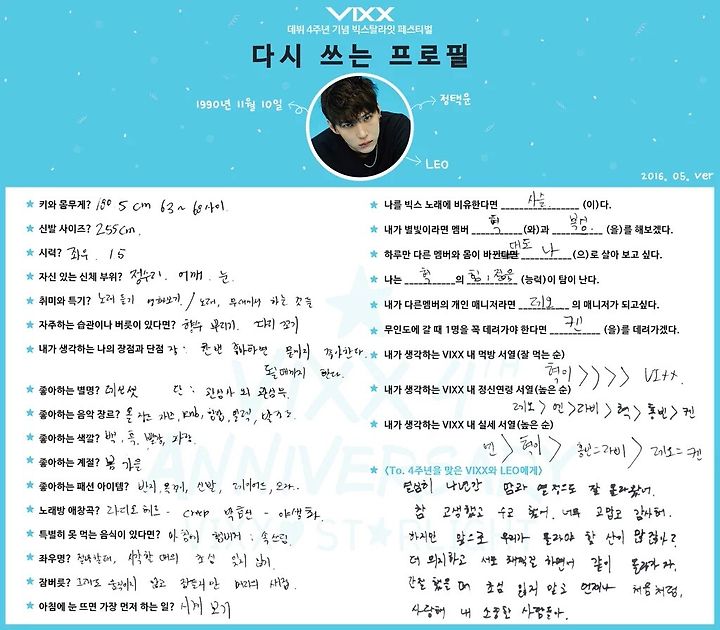 VIXX
데뷔 4주년 기념 빅스탈라잇 페스티벌
다시 쓰는 프로필
1990년 11월 10일
정택운
LEO
2016. 05. ver
키와 몸무게? 180 5 cm 63 ~ 68 사이.
신발 사이즈? 255cm.
시력? 좌우. 1.5
자신 있는 신체 부위? 정수리. 어깨. 눈.
취미와 특기? 노래 듣기 영화보기. / 노래, 무대에서 하는 것들
자주하는 습관이나 버릇이 있다면? 향수 뿌리기. 다리 꼬기
내가 생각하는 나의 장점과 단점 장 : 한번 한다하면 끝까지 한다.
될때까지 한다.
좋아하는 별명? 단 :
좋아하는 음악 장르? 올 장르 R&B, 힙합, 발라드,
좋아하는 색깔? 백, 흑, 빨강, 파랑.
좋아하는 계절? 봄 가을
좋아하는 패션 아이템? 반지, 목걸이, 신발, 레이어드,
노래방 애창곡? 라디오헤드 - creep 박효신 - 야생화
특히 못 먹는 음식이 있다면? 아침에 : 속쓰림.
좌우명? 시작할 때의 초심 잃지 않기.
잠버릇?
아침에 눈 뜨면 가장 먼저 하는 일? 시계 보기
나를 빅스 노래에 비유한다면 사슬 (이)다.
내가 별빛이라면 멤버 혁 (와)과 (을)를 해보겠다.
하루만 다른 멤버와 몸이 바뀐다면 그대로 나 (으)로 살아 보고 싶다.
나는 혁 의 힘, 젊음 (능력)이 탐이 난다.
내가 다른멤버의 개인 매니저라면 레오 의 매니저가 되고싶다.
무인도에 갈 때 1명을 꼭 데려가야 한다면 켄 (을)를 데려가겠다.
내가 생각하는 VIXX 내 먹방 서열(잘 먹는 순)
혁이 > > > > VIXX.
내가 생각하는 VIXX 내 정신연령 서열(높은 순)
레오 > 엔 > 라비 > 혁 > 홍빈 > 켄
내가 생각하는 VIXX 내 실세 서열(높은 순)
엔 > 혁이 > 홍빈 = 라비 > 레오 = 켄
<To. 4주년을 맞은 VIXX와 LEO에게>
열심히 4년간 땀과 열정으로 잘 올라왔어.
참 고생했고 수고 했어. 너무 고맙고 감사해.
하지만 앞으로 우리가 올라야 할 산이 많잖아?
더 의지하고 서로 채찍질 하면서 같이 올라가자.
간절 했을 때 초심 잃지 말고 언제나 처음처럼,
사랑해 내 소중한 사람들아.
4TH
ANNIVERSARY
VIXX ST★RLIGHT